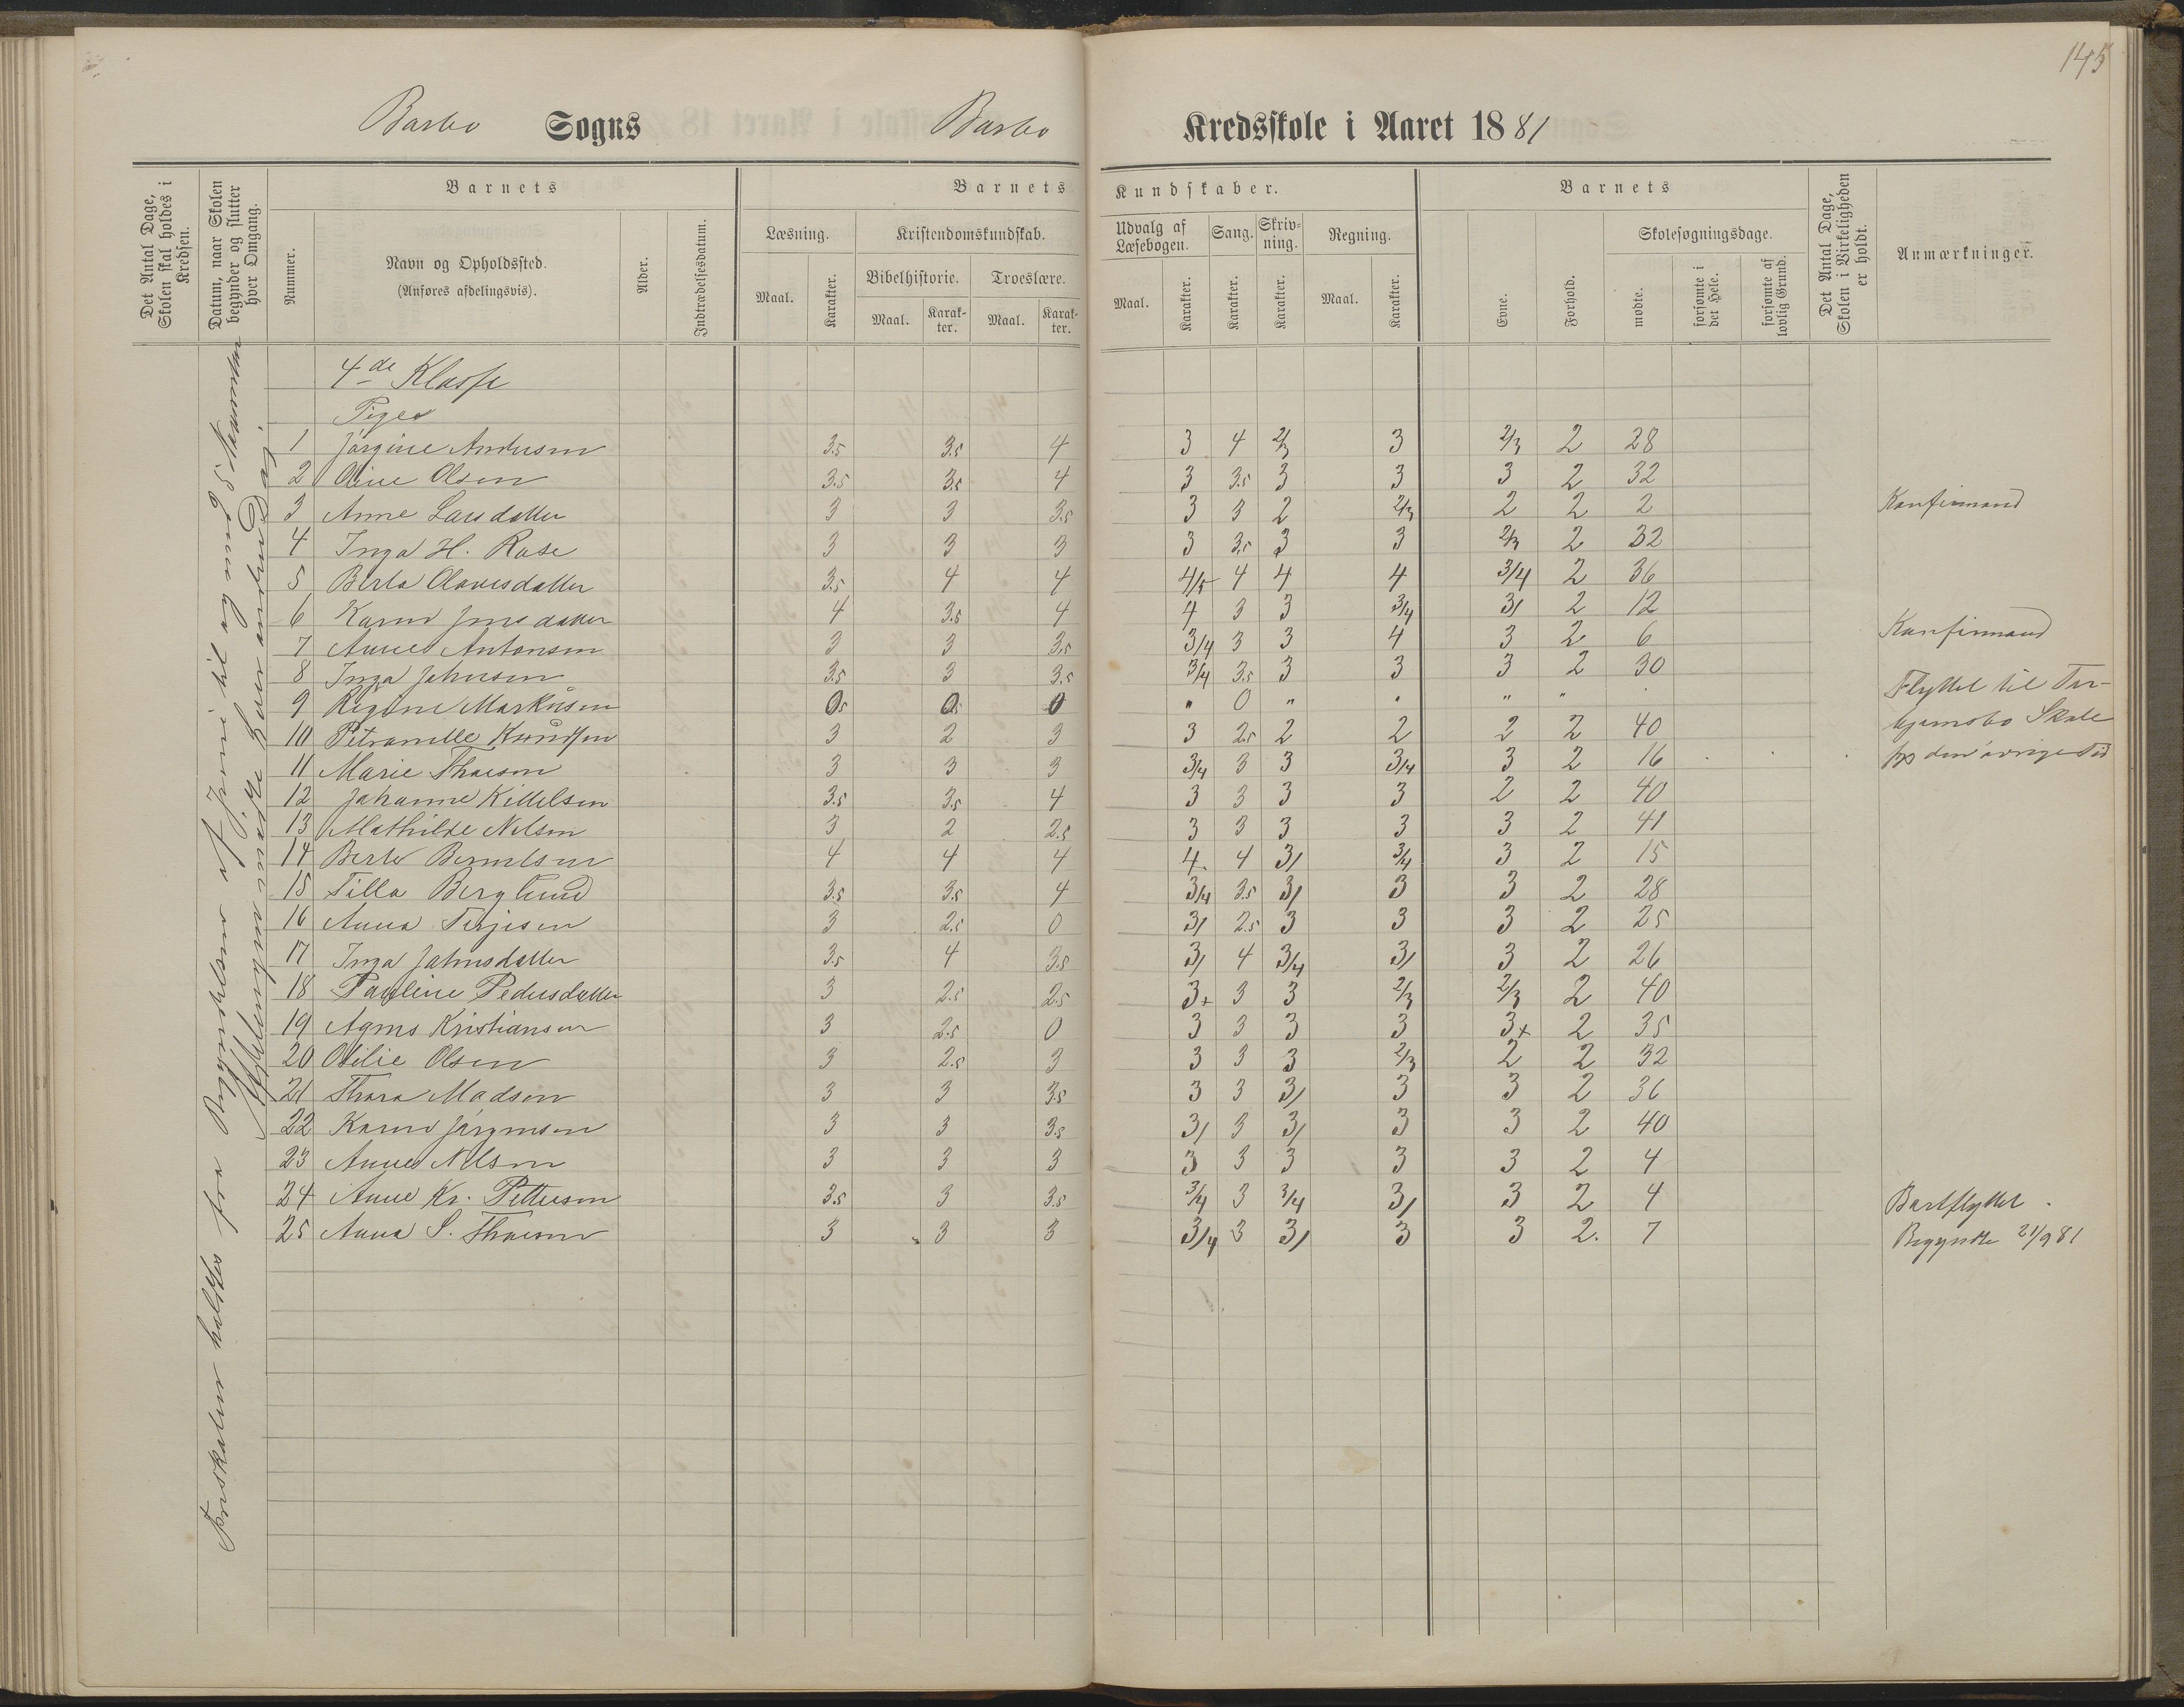 145
Barbo Sogns Barbo Kredsskole i Aaret 1881
Det Antal Dage, Skolen skal holdes i Kredsen.
Datum, naar Skolen begynder og slutter hver Omgang.
Barnets
Nummer.
Navn og Opholdssted.
(Anføres afdelingsvis).
Alder.
Indtrædelsesdatum.
Barnets Kundskaber.
Læsning.
Maal. Karakter.
Kristendomskundskab.
Bibelhistorie. Troeslære.
Maal. Karakter. Maal. Karakter.
Udvalg af Læsebogen. Sang. Skrivning. Regning.
Maal. Karakter. Karakter. Karakter. Maal. Karakter.
Barnets
Evne. Forhold.
Skolesøgningsdage.
mødte. forsømte i det Hele. forsømte af lovlig Grund.
Det Antal Dage, Skolen i Virkeligheden er holdt.
Anmærkninger.
Friskolen holdtes fra Begyndelsen af Juni til og med 5 November
Afdelingen maatte hver anden Dag.
4de Klasse
Piger
1 Jørgine Andersen 3.5 3.5 4 3 4 2/3 3 2/3 2 28
2 Oline Olsen 3.5 3.5 4 3 3.5 3 3 3 2 32
3 Anne Larsdatter 3 3 3.5 3 3 2 2/3 2 2 2 Konfirmand
4 Inga H. Rose 3 3 3 3 3.5 3 3 2/3 2 32
5 Berta Olavesdatter 3.5 4 4 4/5 4 4 4 3/4 2 36
6 Karen Jensdatter 4 3.5 4 4 3 3 3/4 3/ 2 12
7 Anne Antonsen 3 3 3.5 3/4 3 3 4 3 2 6 Konfirmand
8 Inga Johnsen 3.5 3 3.5 3/4 3.5 3 3 3 2 30
9 Regine Markusen 0 0 0 " 0 " " " " Flyttet til Torbjørnsbo Skole for den øvrige Tid
10 Petronelle Knudsen 3 2 3 3 2.5 2 2 2 2 40
11 Marie Thorsen 3 3 3 3/4 3 3 3/4 3 2 16
12 Johanne Kittelsen 3.5 3.5 4 3 3 3 3 2 2 40
13 Mathilde Nilsen 3 2 2.5 3 3 3 3 3 2 41
14 Berte Berntsen 4 4 4 4 4 3/ 3/4 3 2 15
15 Tilla Berglund 3.5 3.5 4 3/4 3.5 3/ 3 3 2 28
16 Anna Terjesen 3 2.5 0 3/ 2.5 3 3 3 2 25
17 Inga Johnsdatter 3.5 4 3.5 3/ 4 3/4 3/ 3 2 26
18 Pauline Pedersdatter 3 2.5 2.5 3+ 3 3 2/3 2/3 2 40
19 Agnes Kristiansen 3 2.5 0 3 3 3 3 3+ 2 35
20 Otilie Olsen 3 2.5 3 3 3 3 2/3 2 2 32
21 Thora Madsen 3 3 3.5 3 3 3/ 3 3 2 36
22 Karen Jørgensen 3 3 3.5 3/ 3 3/ 3 3 2 40
23 Anne Nilsen 3 3 3 3 3 3 3 3 2 4
24 Anne Kr. Pettersen 3.5 3 3.5 3/4 3 3/4 3/ 3 2 4 Bortflyttet.
25 Anna S. Thorsen 3 3 3 3/4 3 3/ 3 3 2. 7 Begyndte 21/9 81